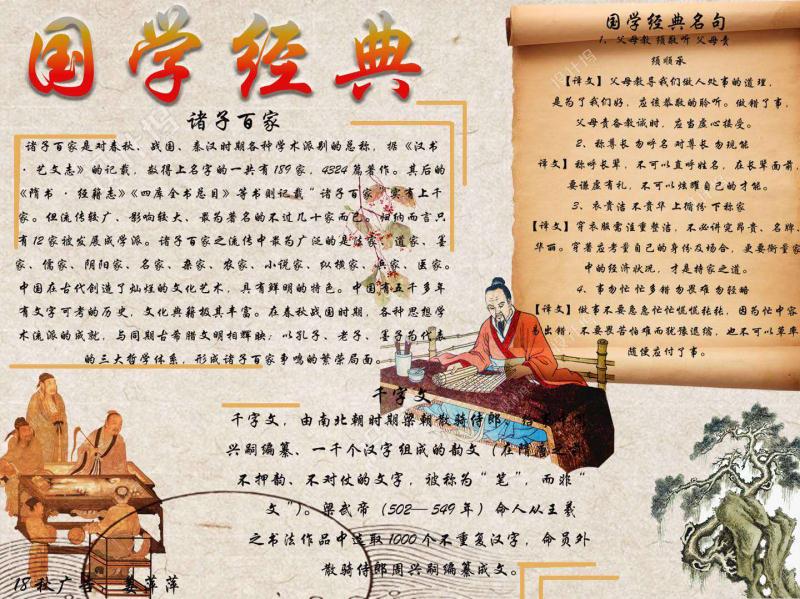 国学经典
诸子百家
诸子百家是对春秋、战国、秦汉时期各种学术派别的总称，据《汉书
·艺文志》的记载，数得上名字的一共有189家，4324篇著作。其后的
《隋书·经籍志》《四库全书总目》等书则记载“诸子百家”实有上千
家。但流传较广、影响较大、最为著名的不过几十家而已。归纳而言只
有12家被发展成学派。诸子百家之流传中最为广泛的是法家、道家、墨
家、儒家、阴阳家、名家、杂家、农家、小说家、纵横家、兵家、医家。
中国在古代创造了灿烂的文化艺术，具有鲜明的特色。中国有五千多年
有文字可考的历史，文化典籍极其丰富。在春秋战国时期，各种思想学
术流派的成就，与同期古希腊文明相辉映；以孔子、老子、墨子为代表
的三大哲学体系，形成诸子百家争鸣的繁荣局面。
国学经典名句
1、父母教 须敬听 父母责
须顺承
【译文】父母教导我们做人处事的道理，
是为了我们好，应该恭敬的聆听。做错了事，
父母责备教诫时，应当虚心接受。
2、称尊长勿呼名 对尊长勿现能
译文】称呼长辈，不可以直呼姓名，在长辈面前，
要谦虚有礼，不可以炫耀自己的才能。
3、衣贵洁 不贵华 上循份 下称家
【译文】穿衣服需注重整洁，不必讲究昂贵、名牌、
华丽。穿著应考量自己的身份及场合，更要衡量家
中的经济状况，才是持家之道。
4、事勿忙忙多错勿畏难勿轻略
【译文】做事不要急急忙忙慌慌张张，因为忙中容
易出错，不要畏苦怕难而犹豫退缩，也不可以草率，
随便应付了事。
千字文
千字文，由南北朝时期梁朝散骑侍郎、给
兴嗣编纂、一千个汉字组成的韵文（在隋唐之
不押韵、不对仗的文字，被称为“笔”，而非“
文”）。梁武帝（502—549年）命人从王羲
之书法作品中选取1000个不重复汉字，命员外
散骑侍郎周兴嗣编纂成文。
18秋广告，姜萍萍